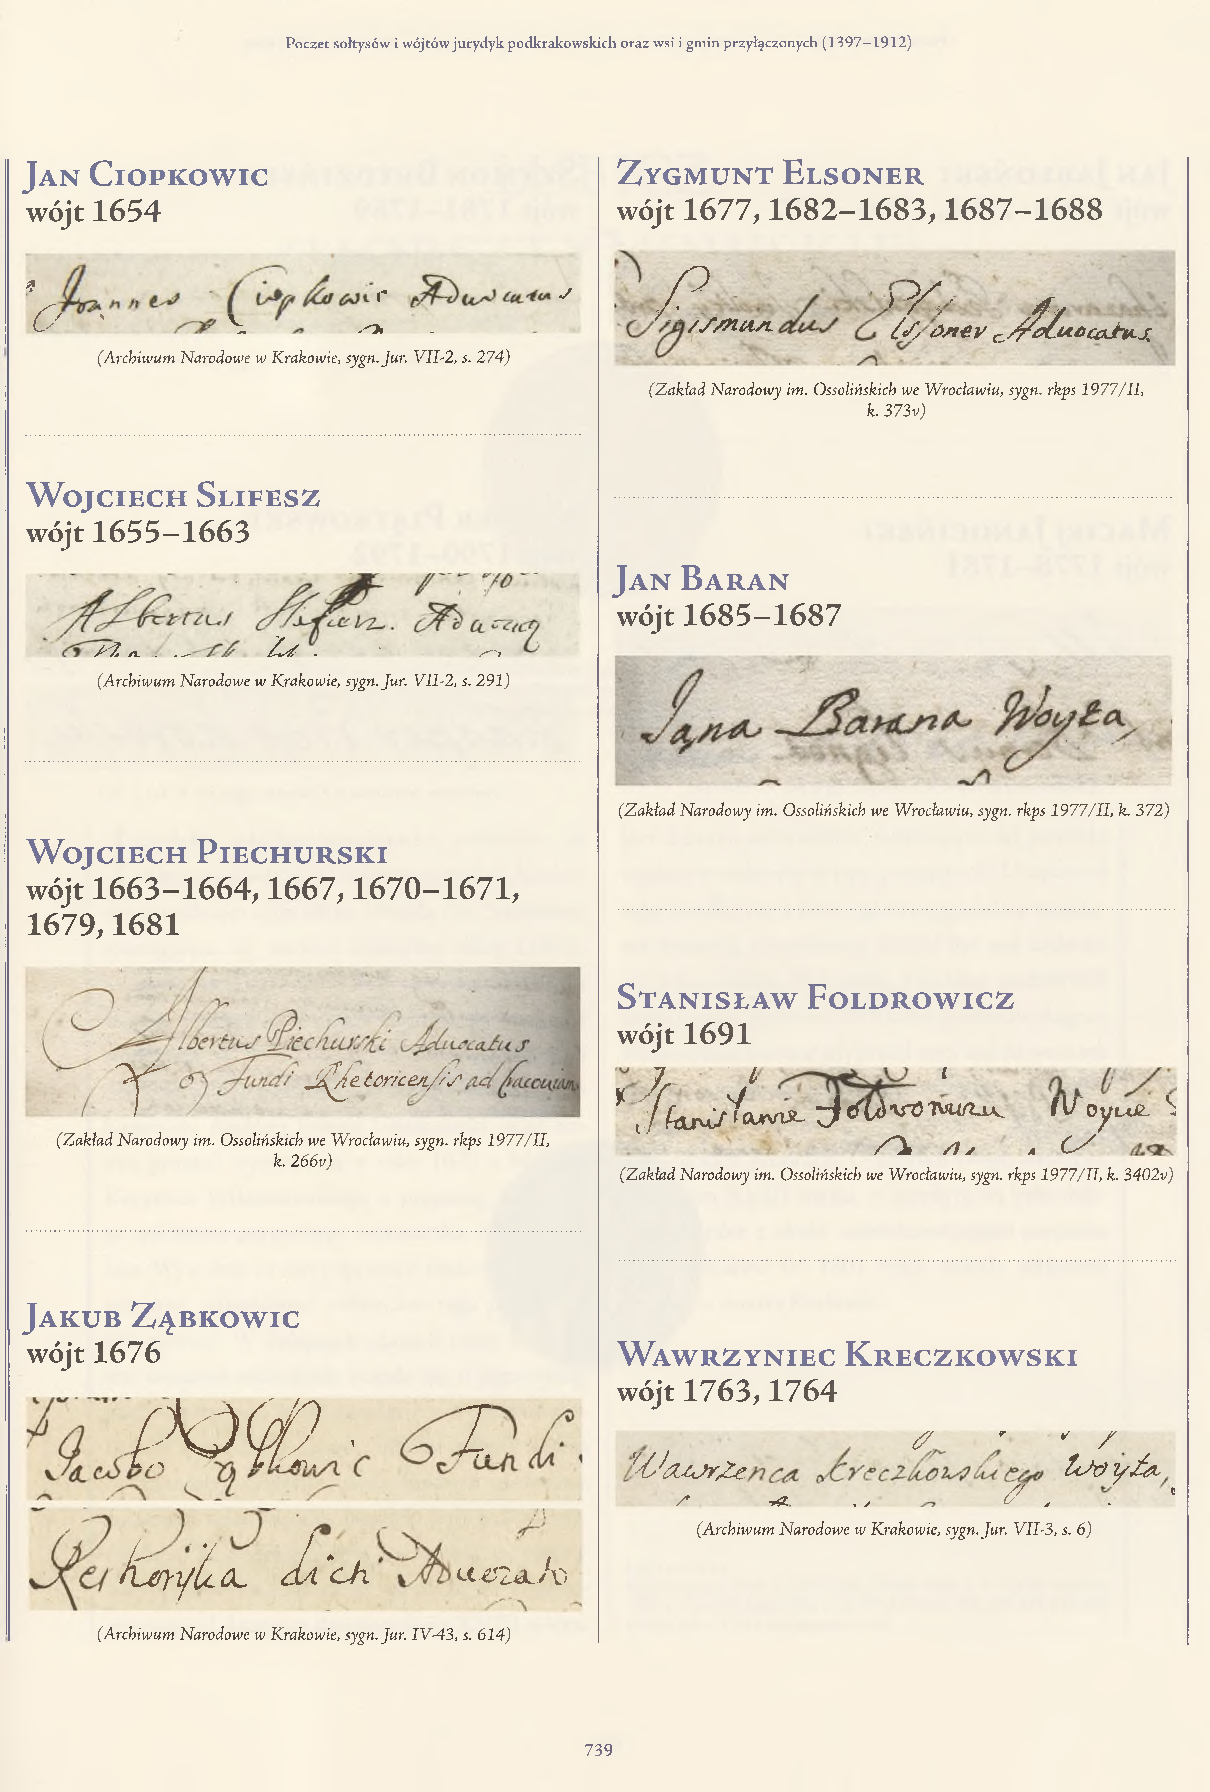 Poczet sołtysów i wójtów jurydyk podkrakowskich oraz wsi i gmin przyłączonych (1397–1912)
Jan Ciopkowic
wójt 1654
Joannes Ciopkowic Aduocatus
(Archiwum Narodowe w Krakowie, sygn. Jur. VII-2, s. 274)
Wojciech Slifesz
wójt 1655–1663
Albertus
(Archiwum Narodowe w Krakowie, sygn. Jur. VII-2, s. 291)
Wojciech Piechurski
wójt 1663–1664, 1667, 1670–1671,
1679, 1681
Albertus Piechurski Aduocatus
Fundi Rhetoricensis ad Cracouiam
(Zakład Narodowy im. Ossolińskich we Wrocławiu, sygn. rkps 1977/II,
k. 266v)
Jakub Ząbkowic
wójt 1676
Jacobo Ząbkowic Fundi
dicti
(Archiwum Narodowe w Krakowie, sygn. Jur. IV-43, s. 614)
Zygmunt Elsoner
wójt 1677, 1682–1683, 1687–1688
Sigismundus Elssoner Aduocatus.
(Zakład Narodowy im. Ossolińskich we Wrocławiu, sygn. rkps 1977/II,
k. 373v)
Jan Baran
wójt 1685–1687
Jąna Barana Woyta,
(Zakład Narodowy im. Ossolińskich we Wrocławiu, sygn. rkps 1977/II, k. 372)
Stanisław Foldrowicz
wójt 1691
Stanisławie Woycie
(Zakład Narodowy im. Ossolińskich we Wrocławiu, sygn. rkps 1977/II, k. 3402v)
Wawrzyniec Kreczkowski
wójt 1763, 1764
Wawrzenca Kreczkowskiego Woyta,
(Archiwum Narodowe w Krakowie, sygn. Jur. VII-3, s. 6)
739